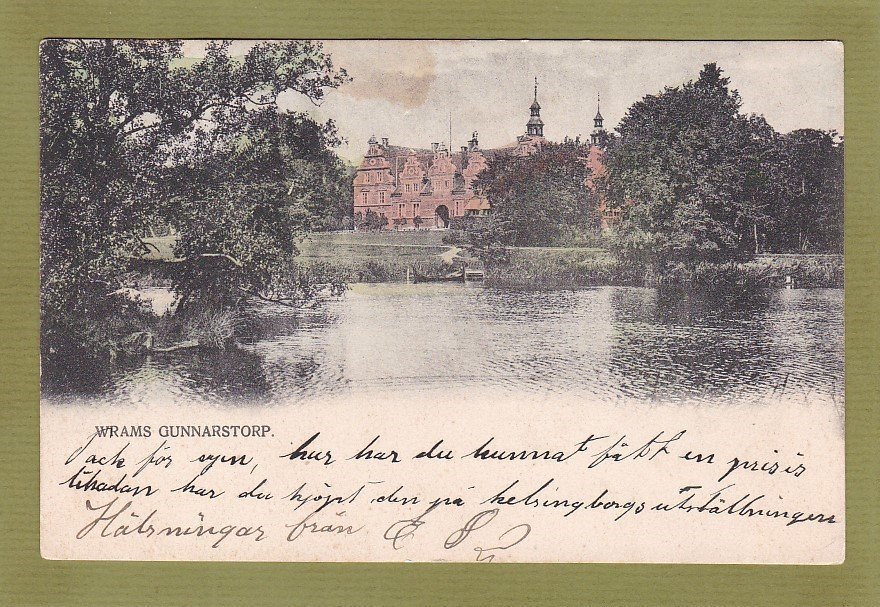 WRAMS GUNNARSTORP.
Jack för vyen, hur har du kunnat fått en prisis
likadan har du köpt den på helsingborgs utställningen
Hälsningar från E S